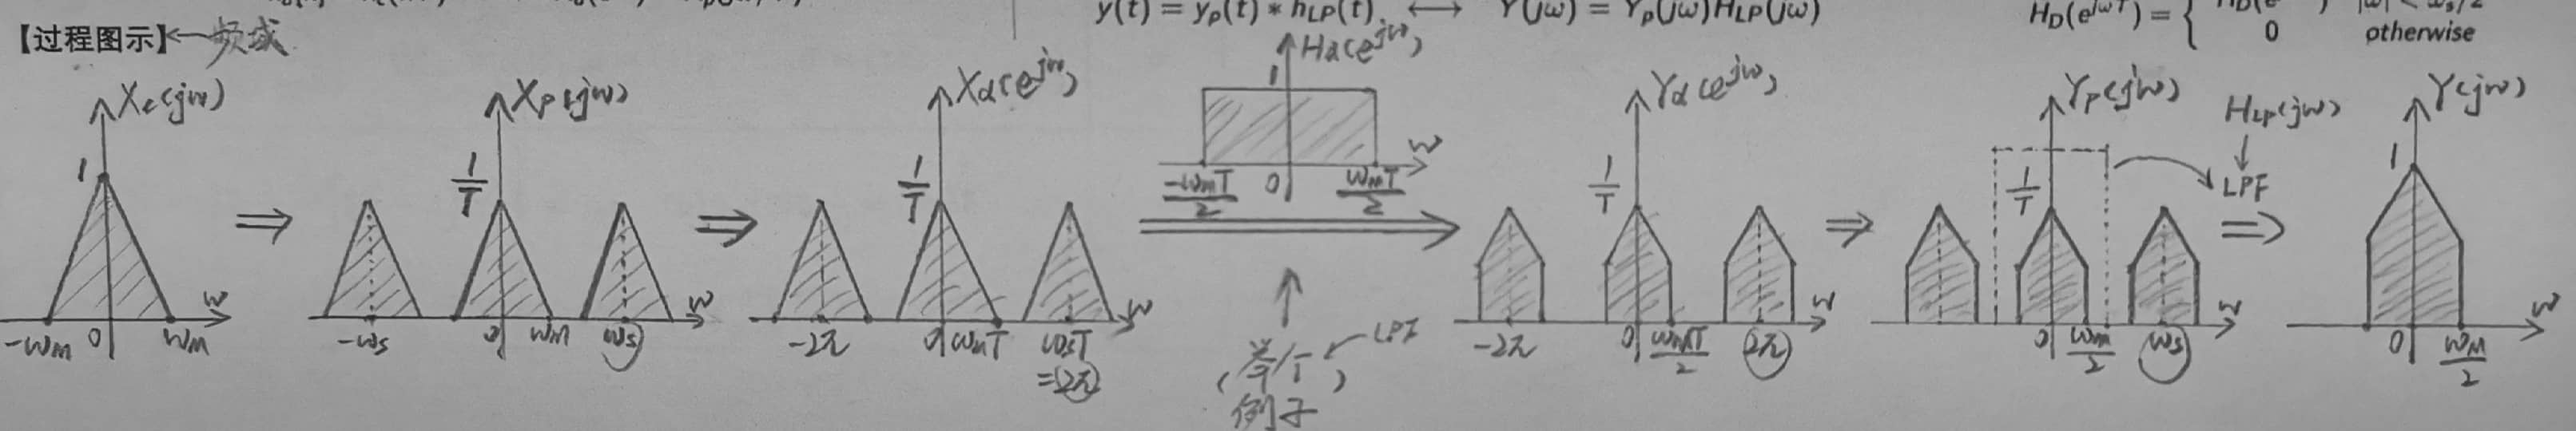 y(t) = y_p(t) * h_LP(t) ⟷ Y(jω) = Y_p(jω)H_LP(jω)
H_D(e^{jωT}) = {
0 otherwise
【过程图示】← 频域
X_c(jω)
1
-ω_M 0 ω_M ω
⇒
X_p(jω)
1/T
-ω_s 0 ω_M ω_s ω
⇒
X_d(e^{jω})
1/T
-2π 0 ω_MT ω_sT ω
=2π
H_d(e^{jω})
1
-ω_MT/2 0 ω_MT/2 ω
⇒
↑
(举个 ← LPF
例子)
Y_d(e^{jω})
1/T
-2π 0 ω_MT/2 2π ω
⇒
Y_p(jω)
1/T
0 ω_M/2 ω_s ω
H_LP(jω)
↓
LPF
⇒
Y(jω)
1
0 ω_M/2 ω